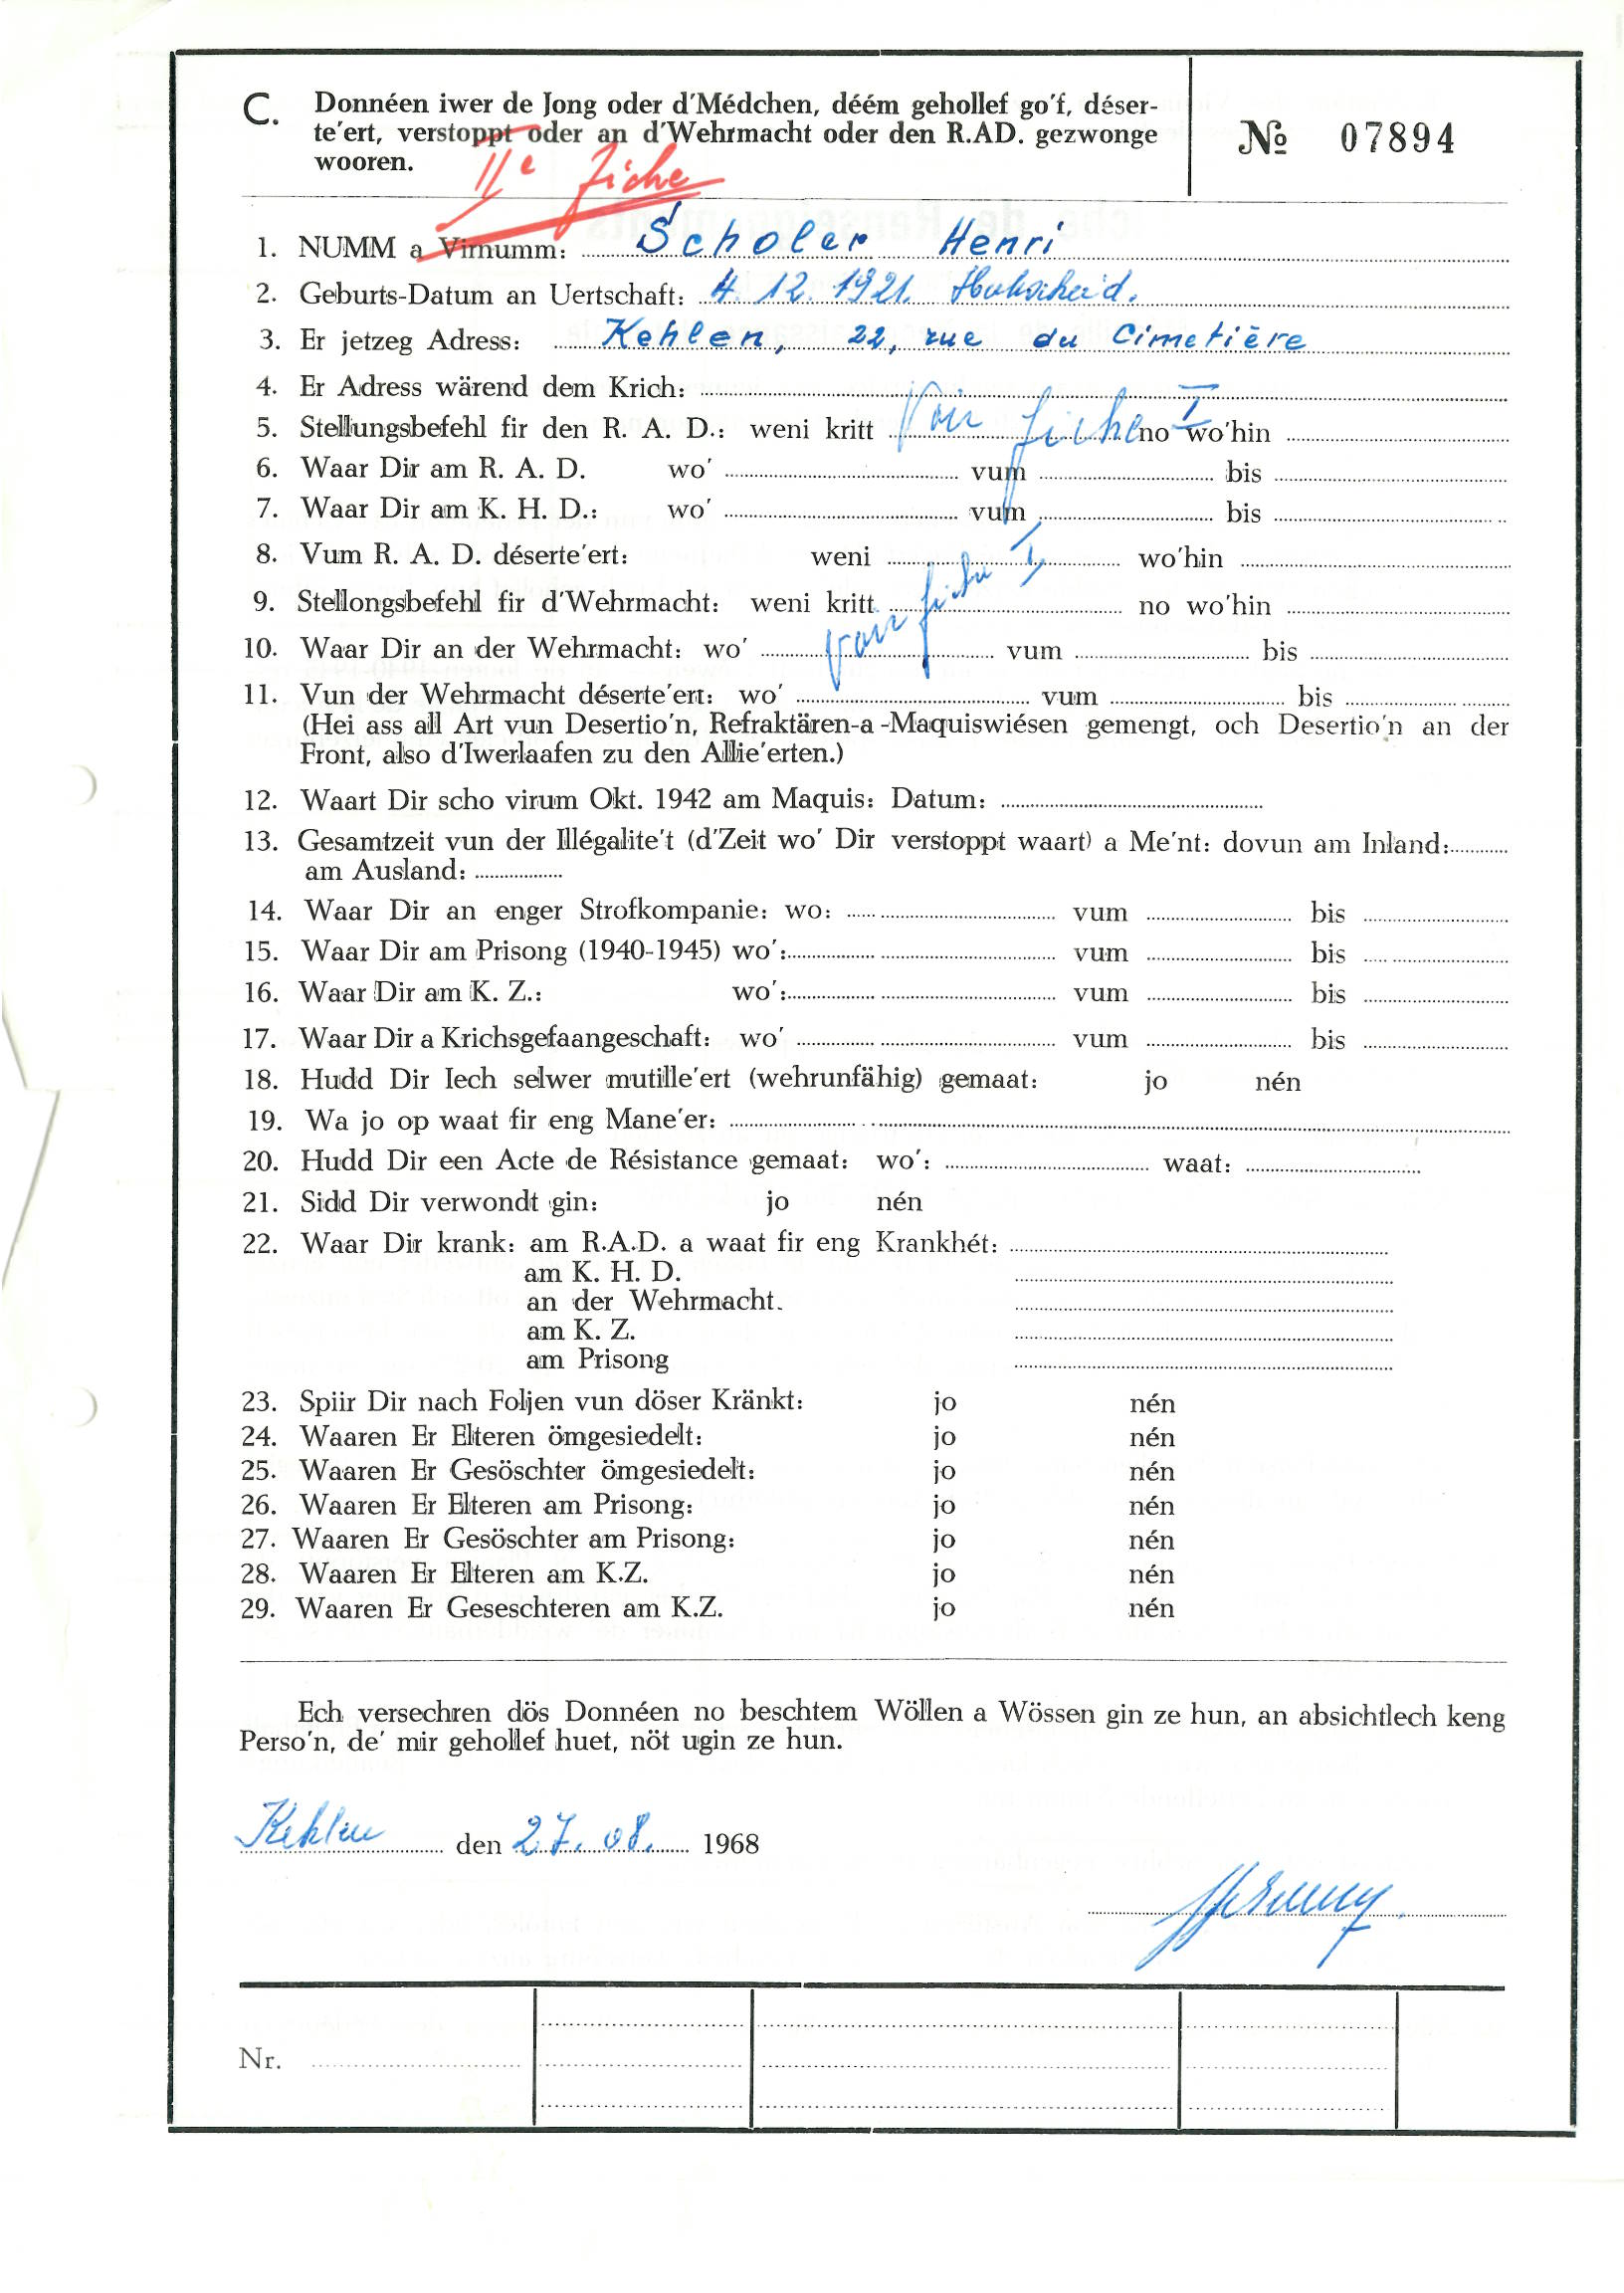 C. Donnéen iwer de Jong oder d'Médchen, déém gehollef go'f, déser-
te'ert, verstoppt oder an d'Wehrmacht oder den R.AD. gezwonge
wooren.
№ 07894
IIe fiche
1. NUMM a Virnumm: Scholer Henri
2. Geburts-Datum an Uertschaft: 4.12.1921. Hoscheid.
3. Er jetzeg Adress: Kehlen, 22, rue du Cimetière
4. Er Adress wärend dem Krich:
Voir fiche I
5. Stellungsbefehl fir den R. A. D.: weni kritt no wo'hin
6. Waar Dir am R. A. D. wo' vum bis
7. Waar Dir am K. H. D.: wo' vum bis
8. Vum R. A. D. déserte'ert: weni wo'hin
Voir fiche I
9. Stellongsbefehl fir d'Wehrmacht: weni kritt no wo'hin
10. Waar Dir an der Wehrmacht: wo' vum bis
11. Vun der Wehrmacht déserte'ert: wo' vum bis
(Hei ass all Art vun Desertio'n, Refraktären-a-Maquiswiésen gemengt, och Desertio'n an der
Front, also d'Iwerlaafen zu den Allie'erten.)
12. Waart Dir scho virum Okt. 1942 am Maquis: Datum:
13. Gesamtzeit vun der Illégalite't (d'Zeit wo' Dir verstoppt waart) a Me'nt: dovun am Inland:
am Ausland:
14. Waar Dir an enger Strofkompanie: wo: vum bis
15. Waar Dir am Prisong (1940-1945) wo': vum bis
16. Waar Dir am K. Z.: wo': vum bis
17. Waar Dir a Krichsgefaangeschaft: wo' vum bis
18. Hudd Dir Iech selwer mutille'ert (wehrunfähig) gemaat: jo nén
19. Wa jo op waat fir eng Mane'er:
20. Hudd Dir een Acte de Résistance gemaat: wo': waat:
21. Sidd Dir verwondt gin: jo nén
22. Waar Dir krank: am R.A.D. a waat fir eng Krankhét:
am K. H. D.
an der Wehrmacht.
am K. Z.
am Prisong
23. Spiir Dir nach Foljen vun döser Kränkt: jo nén
24. Waaren Er Elteren ömgesiedelt: jo nén
25. Waaren Er Gesöschter ömgesiedelt: jo nén
26. Waaren Er Elteren am Prisong: jo nén
27. Waaren Er Gesöschter am Prisong: jo nén
28. Waaren Er Elteren am K.Z. jo nén
29. Waaren Er Geseschteren am K.Z. jo nén
Ech versechren dös Donnéen no beschtem Wöllen a Wössen gin ze hun, an absichtlech keng
Perso'n, de' mir gehollef huet, nöt ugin ze hun.
Kehlen den 27.08. 1968
Nr.